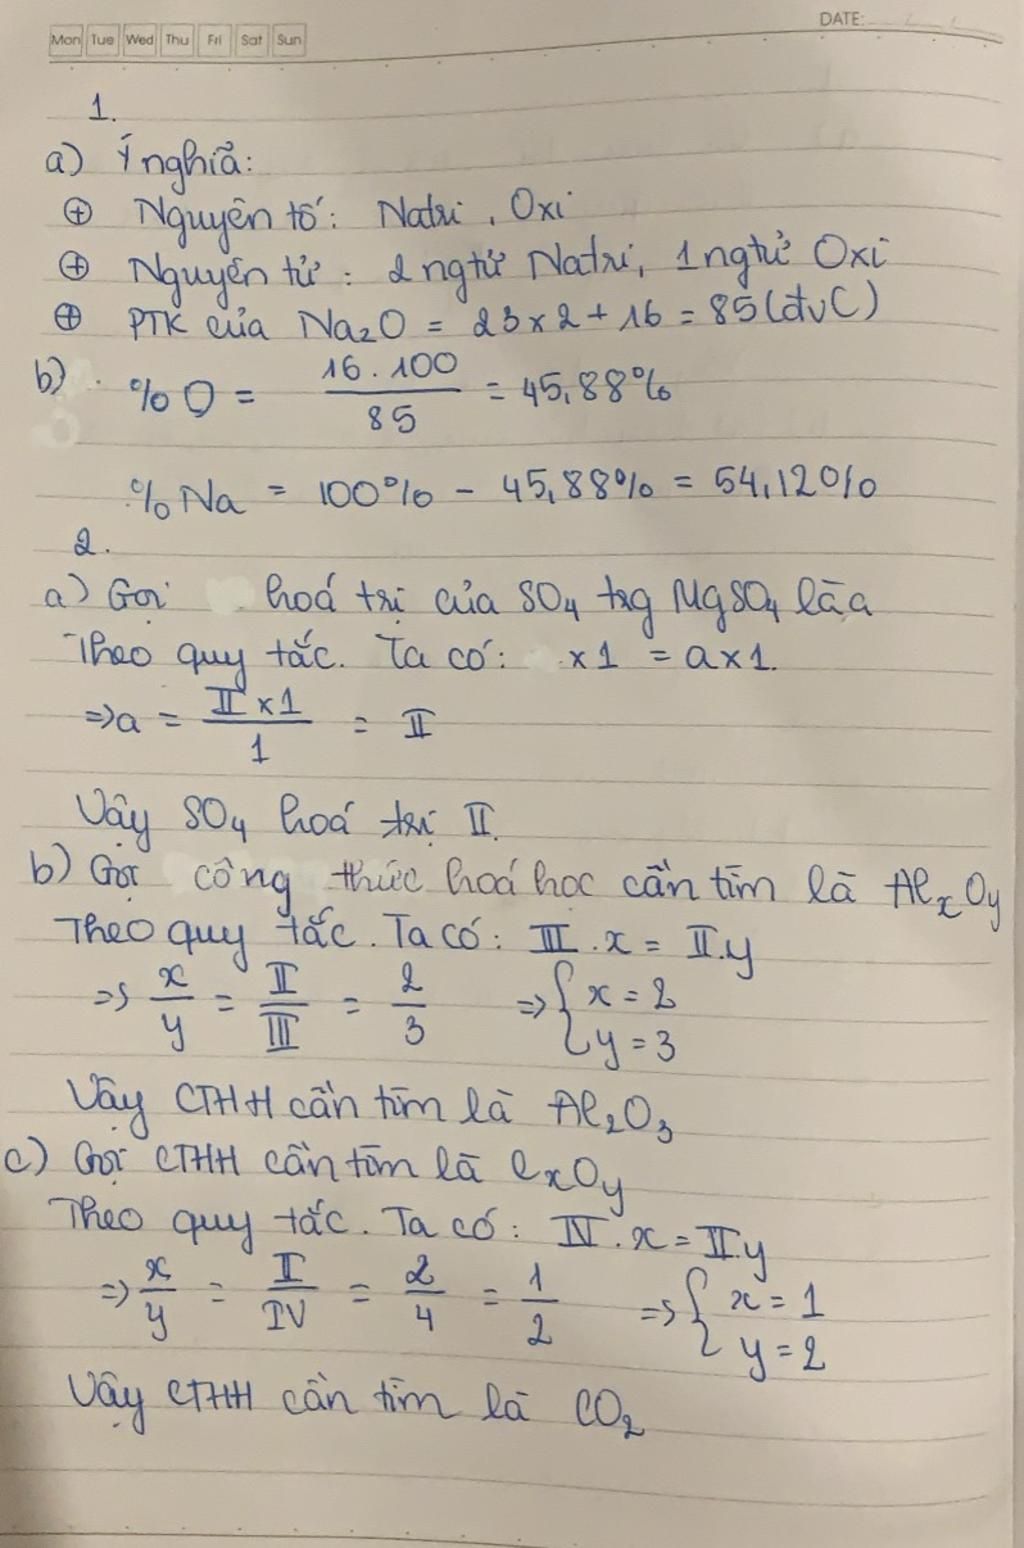 DATE:
Mon Tue Wed Thu Fri Sat Sun
1.
a) Ý nghĩa:
⊕ Nguyên tố: Natri, Oxi
⊕ Nguyên tử: 2 ngtử Natri, 1 ngtử Oxi
⊕ PTK của Na₂O = 23x2+16 = 85(đvC)
b) %O = 16.100/85 = 45,88%
%Na = 100% - 45,88% = 54,12%
2.
a) Gọi hoá trị của SO₄ trg MgSO₄ là a
Theo quy tắc. Ta có: x1 = ax1.
=> a = II x1/1 = II
Vậy SO₄ hoá trị II.
b) Gọi công thức hoá học cần tìm là AlₓOy
Theo quy tắc. Ta có: III.x = II.y
=> x/y = II/III = 2/3 => { x = 2
y = 3
Vậy CTHH cần tìm là Al₂O₃
c) Gọi CTHH cần tìm là CₓOy
Theo quy tắc. Ta có: IV.x = II.y
=> x/y = II/IV = 2/4 = 1/2 => { x = 1
y = 2
Vậy CTHH cần tìm là CO₂